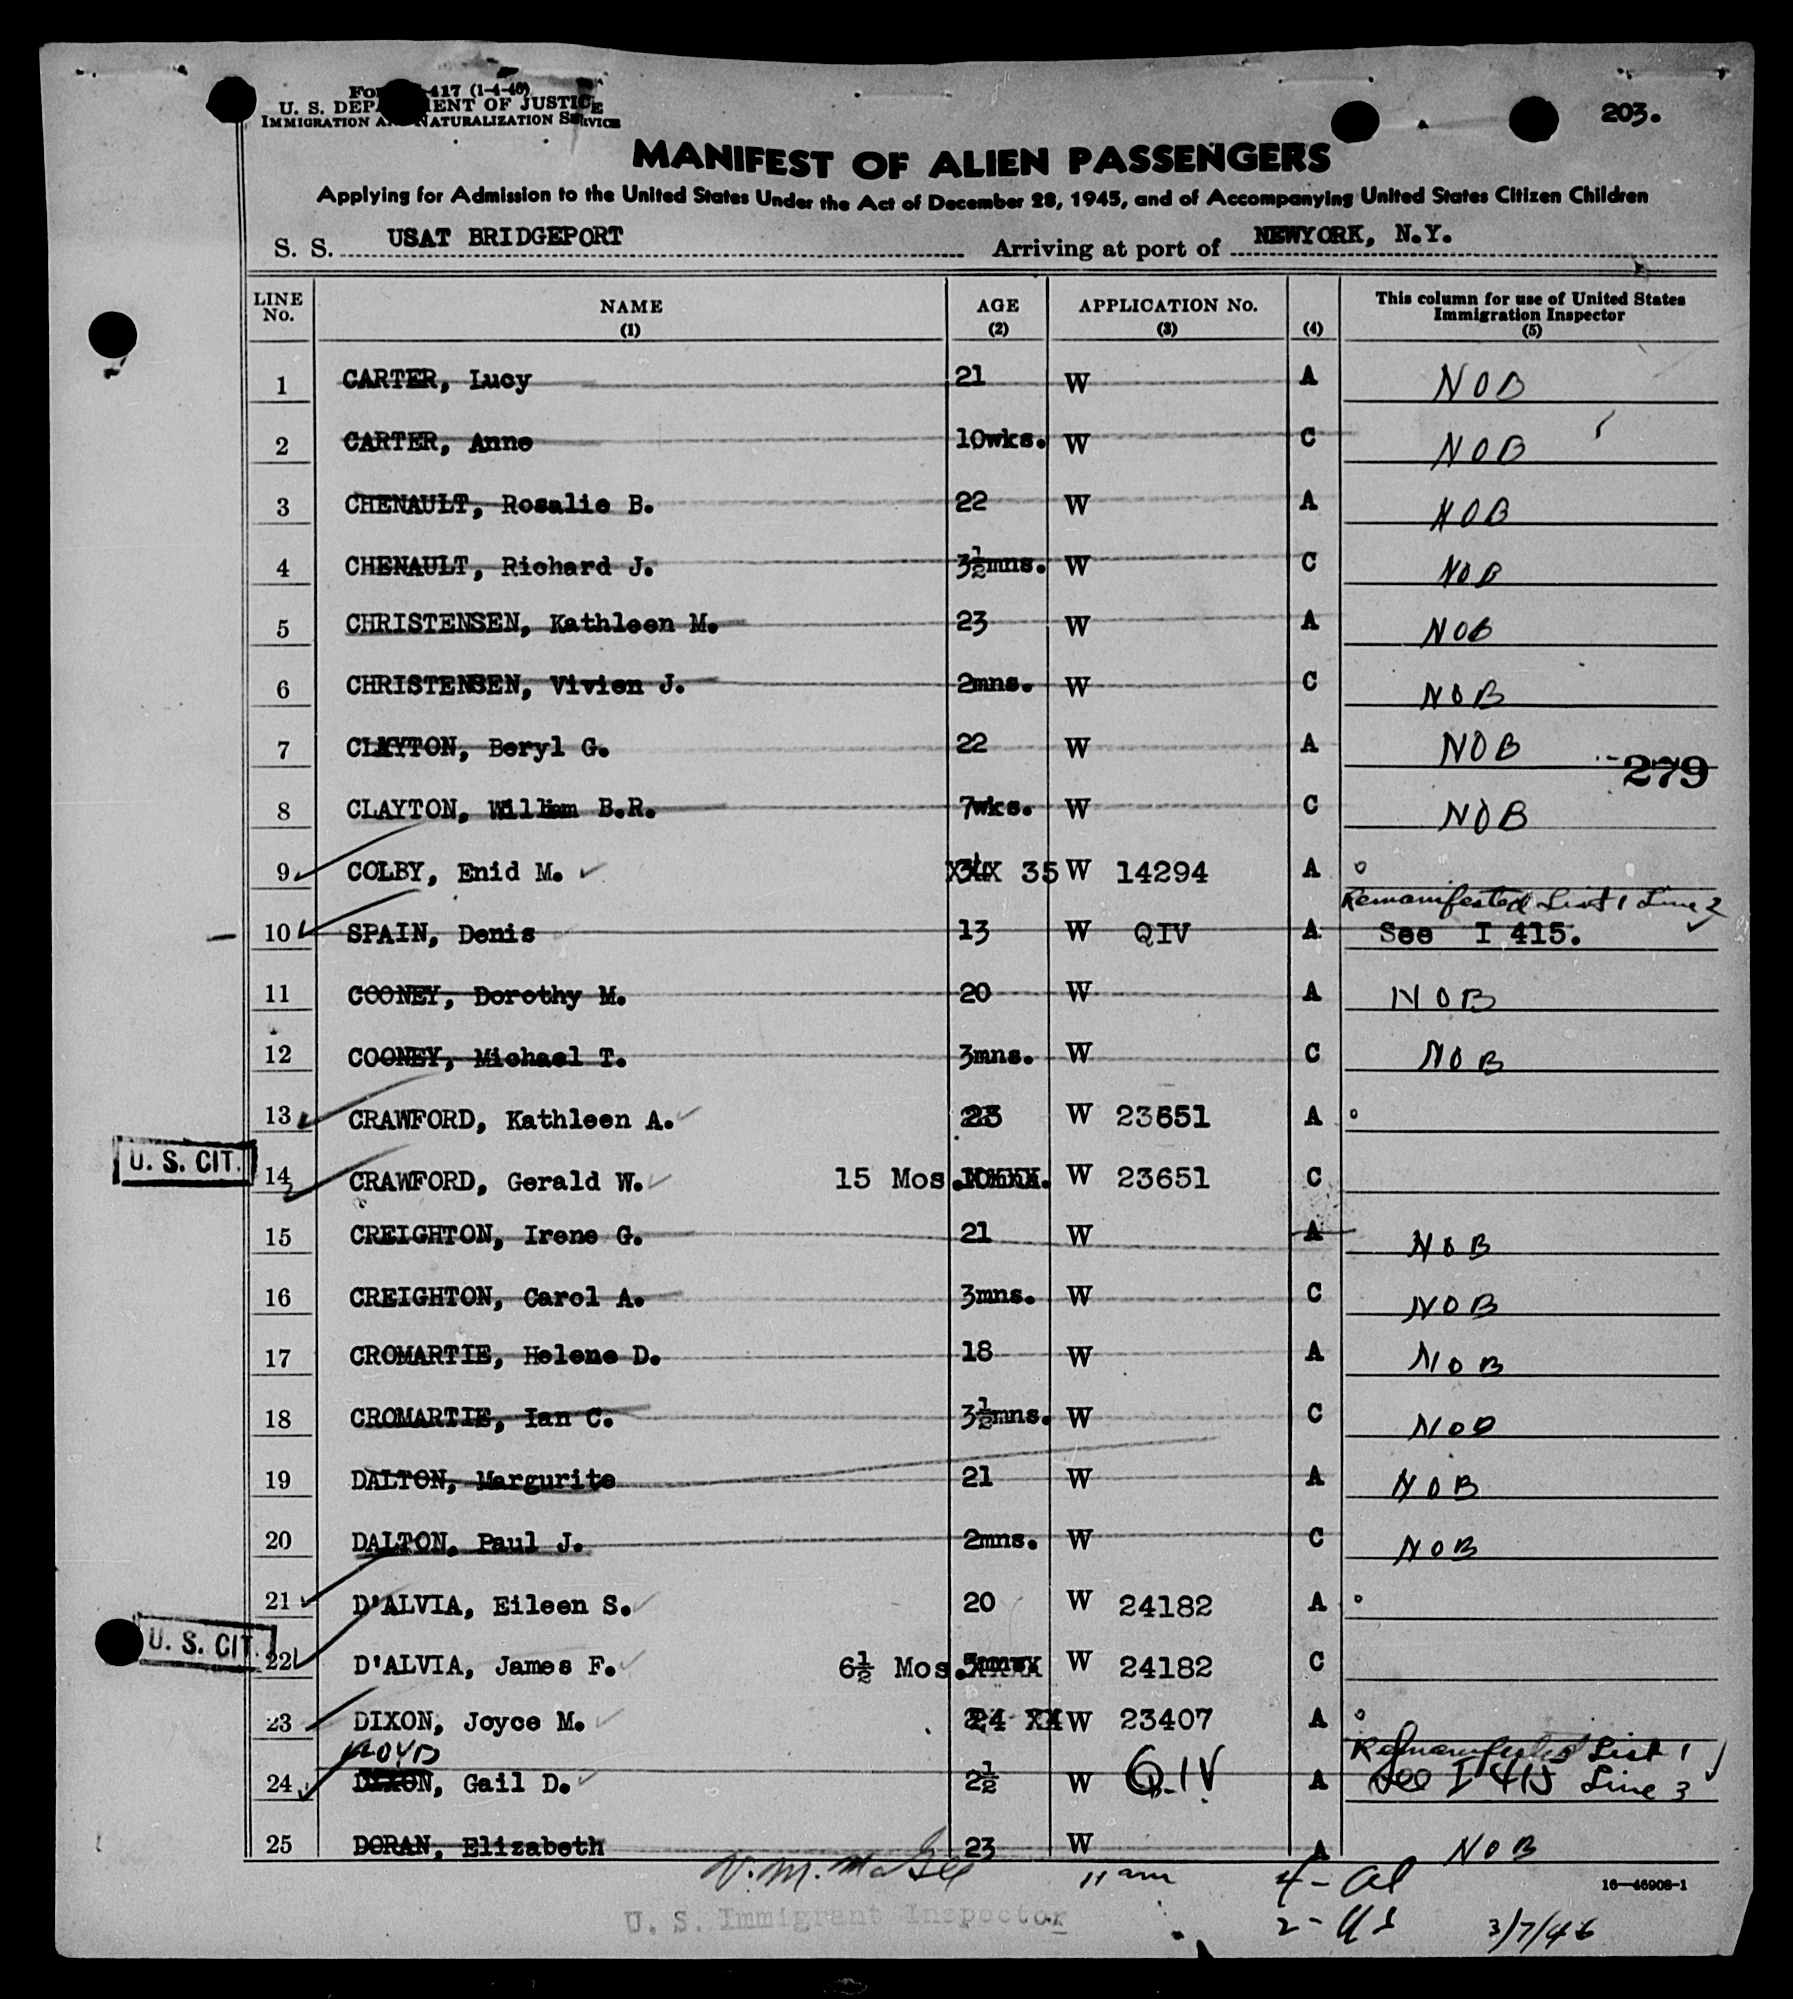 203.
U. S. DEPARTMENT OF JUSTICE
IMMIGRATION AND NATURALIZATION SERVICE
MANIFEST OF ALIEN PASSENGERS
Applying for Admission to the United States Under the Act of December 28, 1945, and of Accompanying United States Citizen Children
S. S. USAT BRIDGEPORT Arriving at port of NEWYORK, N.Y.
LINE No. NAME (1) AGE (2) APPLICATION No. (3) (4) This column for use of United States Immigration Inspector (5)
1 CARTER, Lucy 21 W A NOB
2 CARTER, Anne 10wks. W C NOB
3 CHENAULT, Rosalie B. 22 W A NOB
4 CHENAULT, Richard J. 3½mns. W C NOB
5 CHRISTENSEN, Kathleen M. 23 W A NOB
6 CHRISTENSEN, Vivien J. 2mns. W C NOB
7 CLAYTON, Beryl G. 22 W A NOB
279
8 CLAYTON, William B.R. 7wks. W C NOB
9 COLBY, Enid M. 35 W 14294 A
Remanifested List 1 Line 2
10 SPAIN, Denis 13 W QIV A See I 415.
11 COONEY, Dorothy M. 20 W A NOB
12 COONEY, Michael T. 3mns. W C NOB
13 CRAWFORD, Kathleen A. 23 W 23651 A
U. S. CIT. 14 CRAWFORD, Gerald W. 15 Mos. W 23651 C
15 CREIGHTON, Irene G. 21 W A NOB
16 CREIGHTON, Carol A. 3mns. W C NOB
17 CROMARTIE, Helene D. 18 W A NOB
18 CROMARTIE, Ian C. 3½mns. W C NOB
19 DALTON, Margurite 21 W A NOB
20 DALTON, Paul J. 2mns. W C NOB
21 D'ALVIA, Eileen S. 20 W 24182 A
U. S. CIT. 22 D'ALVIA, James F. 6½ Mos. W 24182 C
23 DIXON, Joyce M. 24 XX W 23407 A
Remanifested List 1
24 DIXON, Gail D. 2½ W Q.IV A See I 415 Line 3
25 DORAN, Elizabeth 23 W A NOB
11 am 4 - Al
16—46908-1
U. S. Immigrant Inspector 2 - US 3/7/46